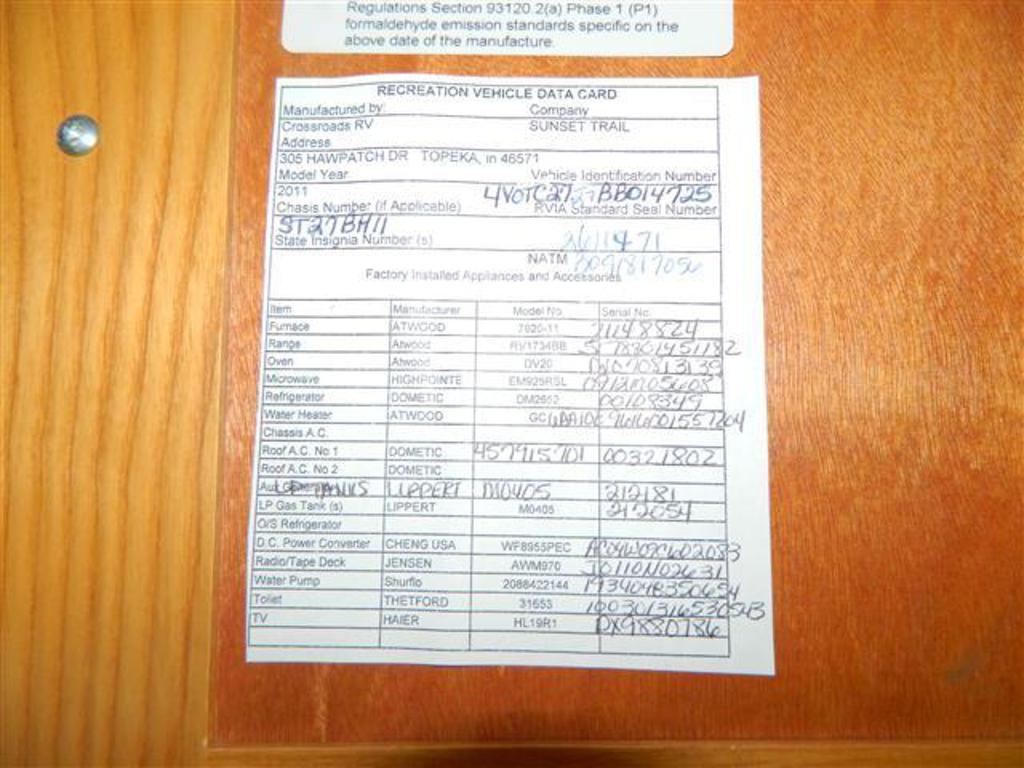 Regulations Section 93120.2(a) Phase 1 (P1)
formaldehyde emission standards specific on the
above date of the manufacture.
RECREATION VEHICLE DATA CARD
Manufactured by: Company
Crossroads RV SUNSET TRAIL
Address
305 HAWPATCH DR TOPEKA, in 46571
Model Year Vehicle Identification Number
2011
Chasis Number (if Applicable) RVIA Standard Seal Number
ST27BH11
State Insignia Number (s)
NATM
Factory Installed Appliances and Accessories
Item Manufacturer Model No. Serial No.
Furnace ATWOOD 7920-11 21148824
Range Atwood RV1734BB
Oven Atwood DV20
Microwave HIGHPOINTE EM925RSL
Refrigerator DOMETIC DM2652 00108349
Water Heater ATWOOD
Chassis A.C.
Roof A.C. No 1 DOMETIC 457915701 00321802
Roof A.C. No 2 DOMETIC
LP TANKS LIPPERT M0405 212181
LP Gas Tank (s) LIPPERT M0405 212054
O/S Refrigerator
D.C. Power Converter CHENG USA WF8955PEC
Radio/Tape Deck JENSEN AWM970
Water Pump Shurflo 2088422144
Toilet THETFORD 31653
TV HAIER HL19R1 DX9880786